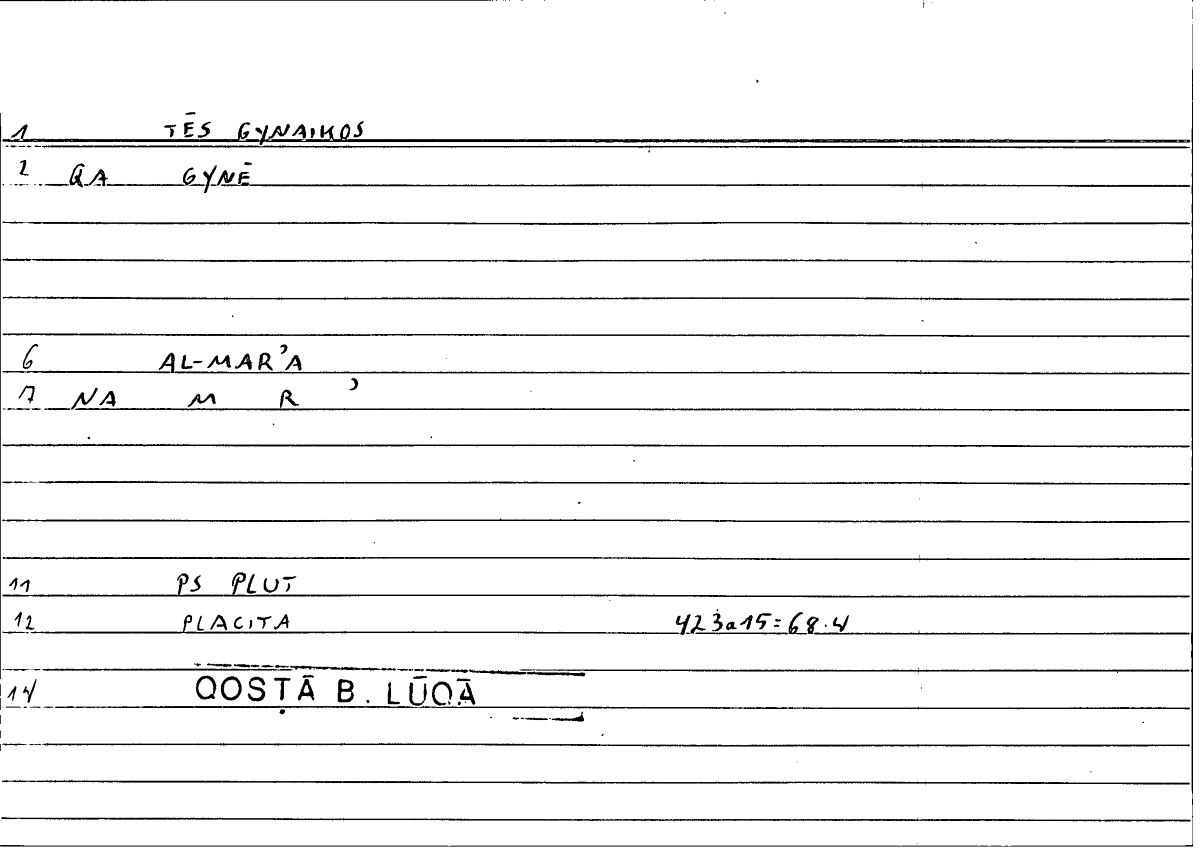 1 TĒS GYNAIKOS
2 QA GYNĒ
6 AL-MARʾA
7 NA M R ʾ
11 PS PLUT
12 PLACITA 423a15=68.4
14 QOSṬĀ B. LŪQĀ